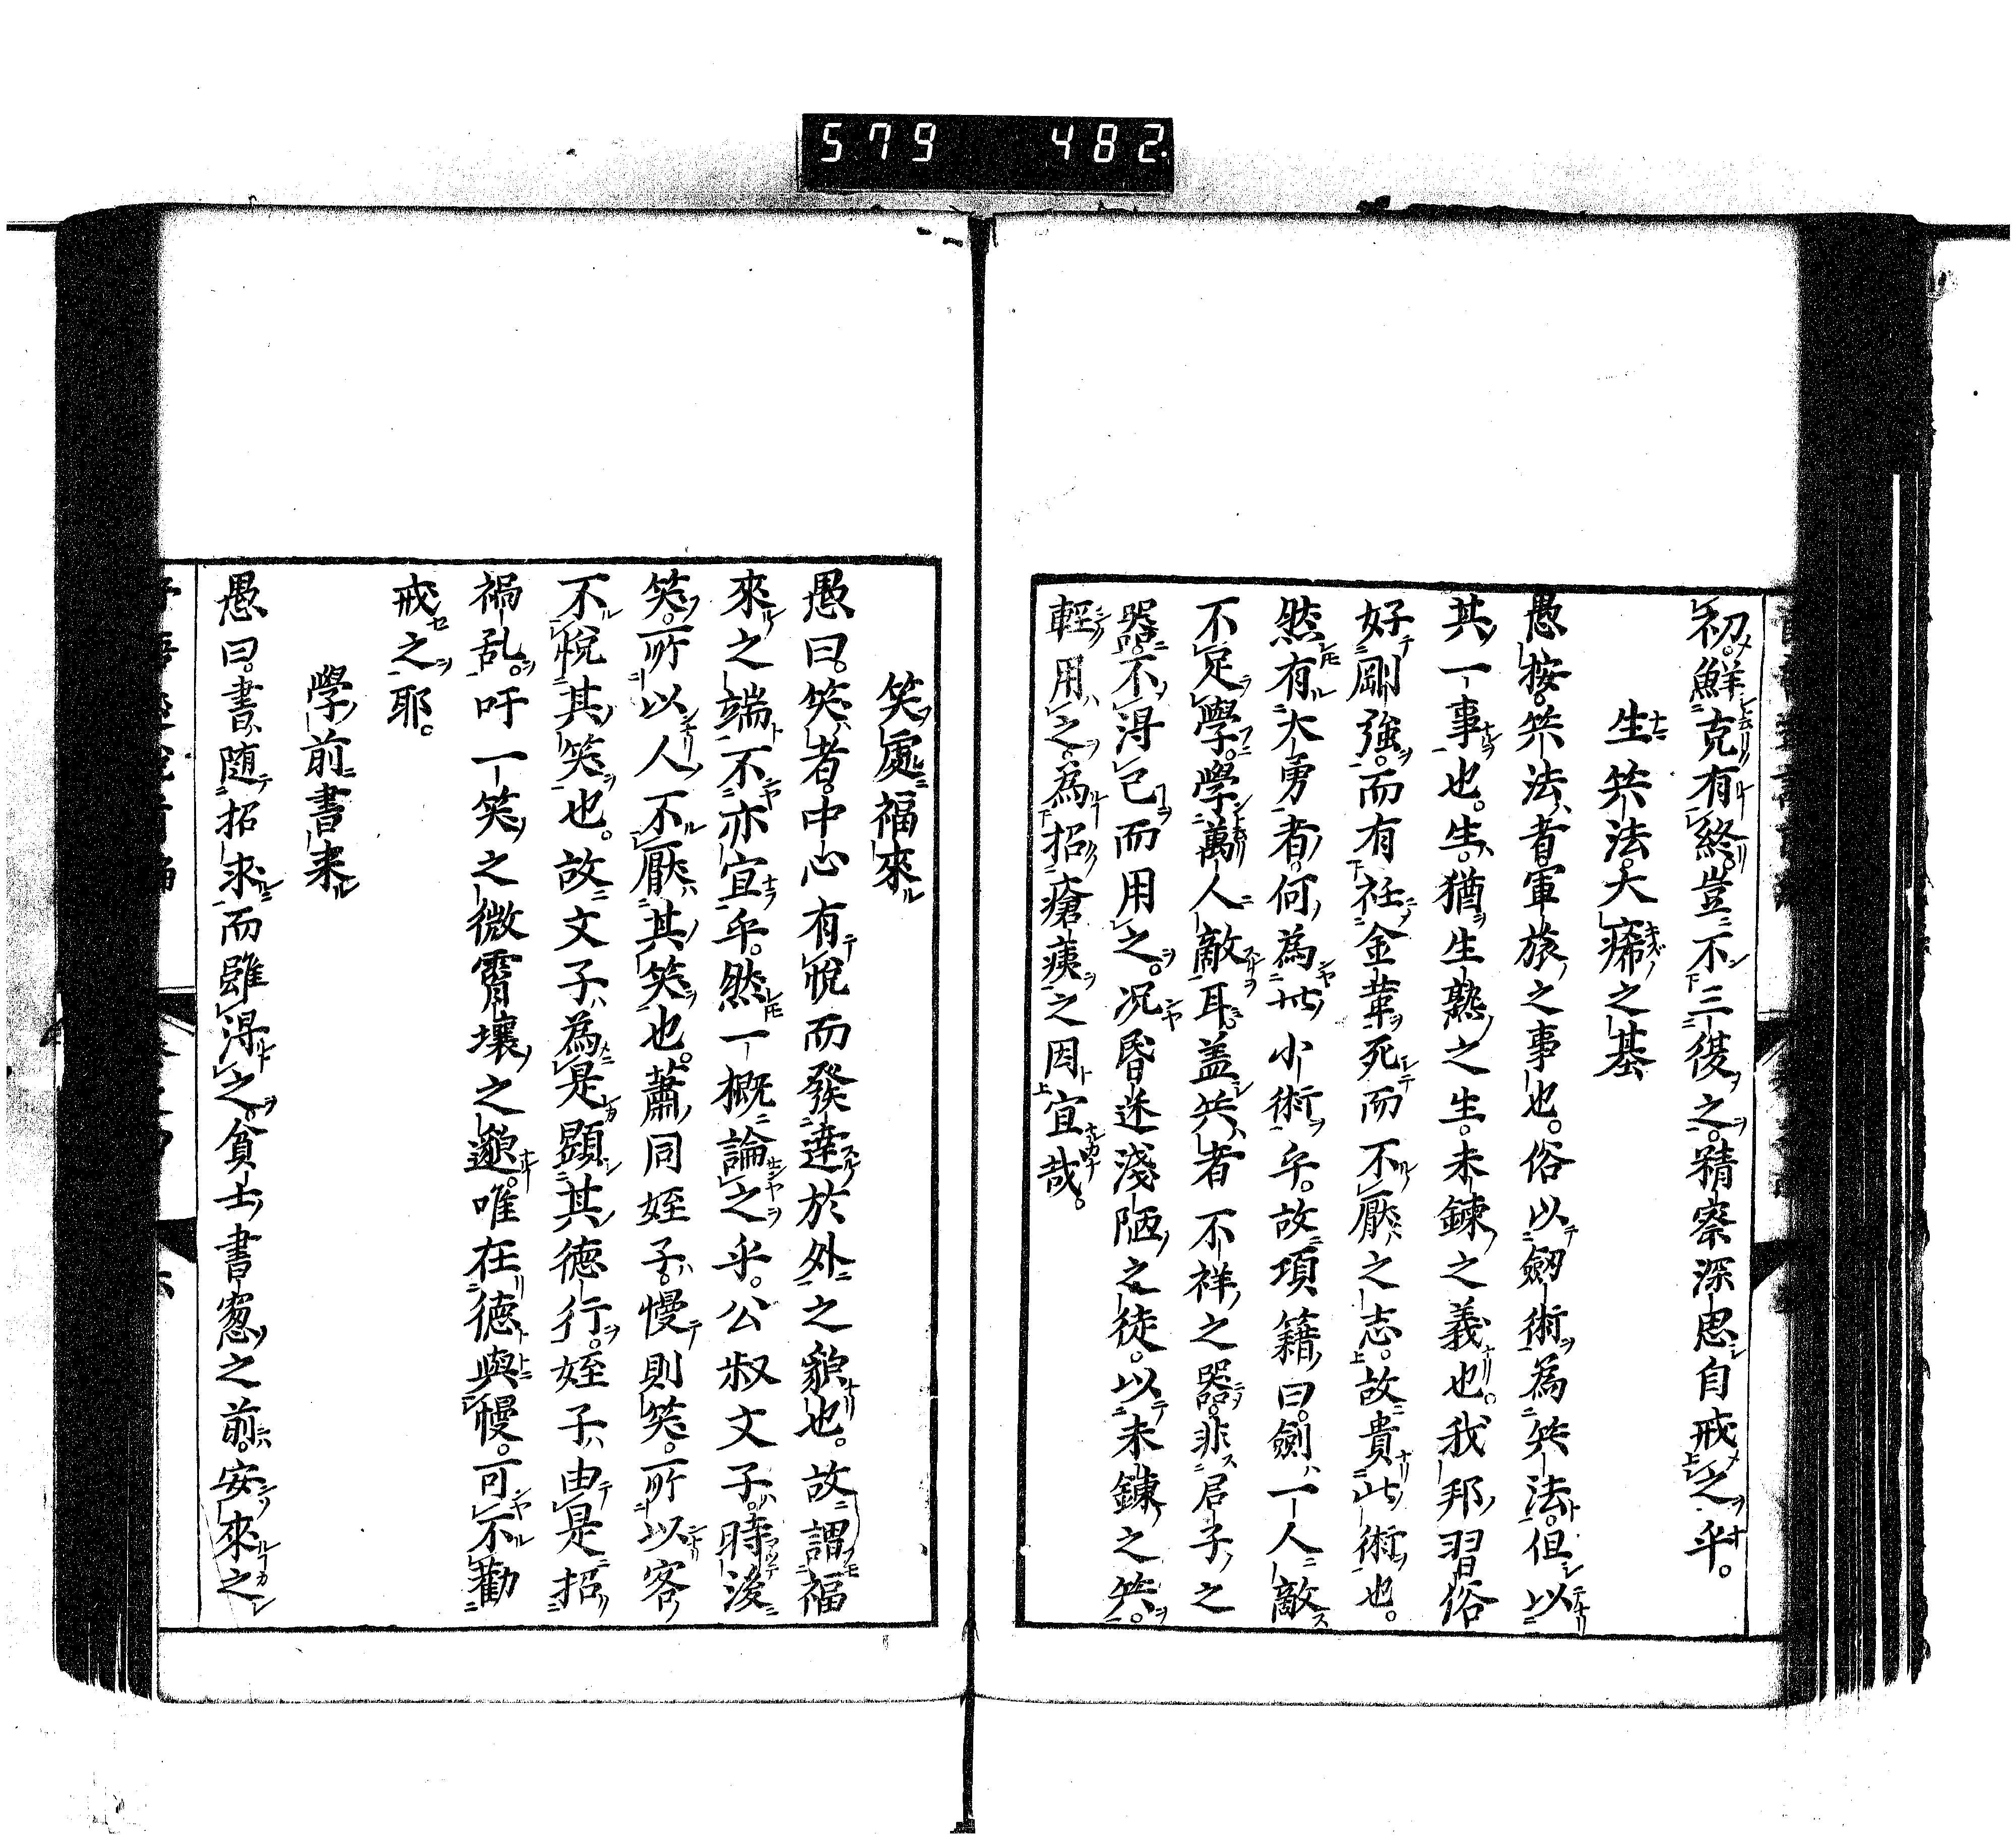 579 482.
初。鮮克有終。豈不三復之。精察深思自戒之乎。
生兵法大瘢之基
愚按。兵法者。軍旅之事也。俗以劔術為兵法。但以
其一事也。生。猶生熟之生。未鍊之義也。我邦習俗
好剛強。而有衽金革死而不厭之志。故貴此術也。
然有大勇者。何為此小術乎。故項籍曰。劍一人敵
不足學。學萬人敵耳。盖兵者不祥之器。非君子之
器。不得已而用之。况昏迷淺陋之徒。以未鍊之兵。
輕用之。為招瘡痍之因。宜哉。
笑處福來
愚曰。笑者。中心有悅而發達於外之貌也。故謂福
來之端。不亦宜乎。然一概論之乎。公叔文子。時後
笑。所以人不厭其笑也。蕭同姪子。慢則笑。所以客
不悅其笑也。故文子為是顯其德行。姪子由是招
禍乱。吁一笑之微霄壤之邈。唯在德與慢。可不勸
戒之耶。
學前書来
愚曰。書随招求而雖得之。貧士書窓之前。安來之